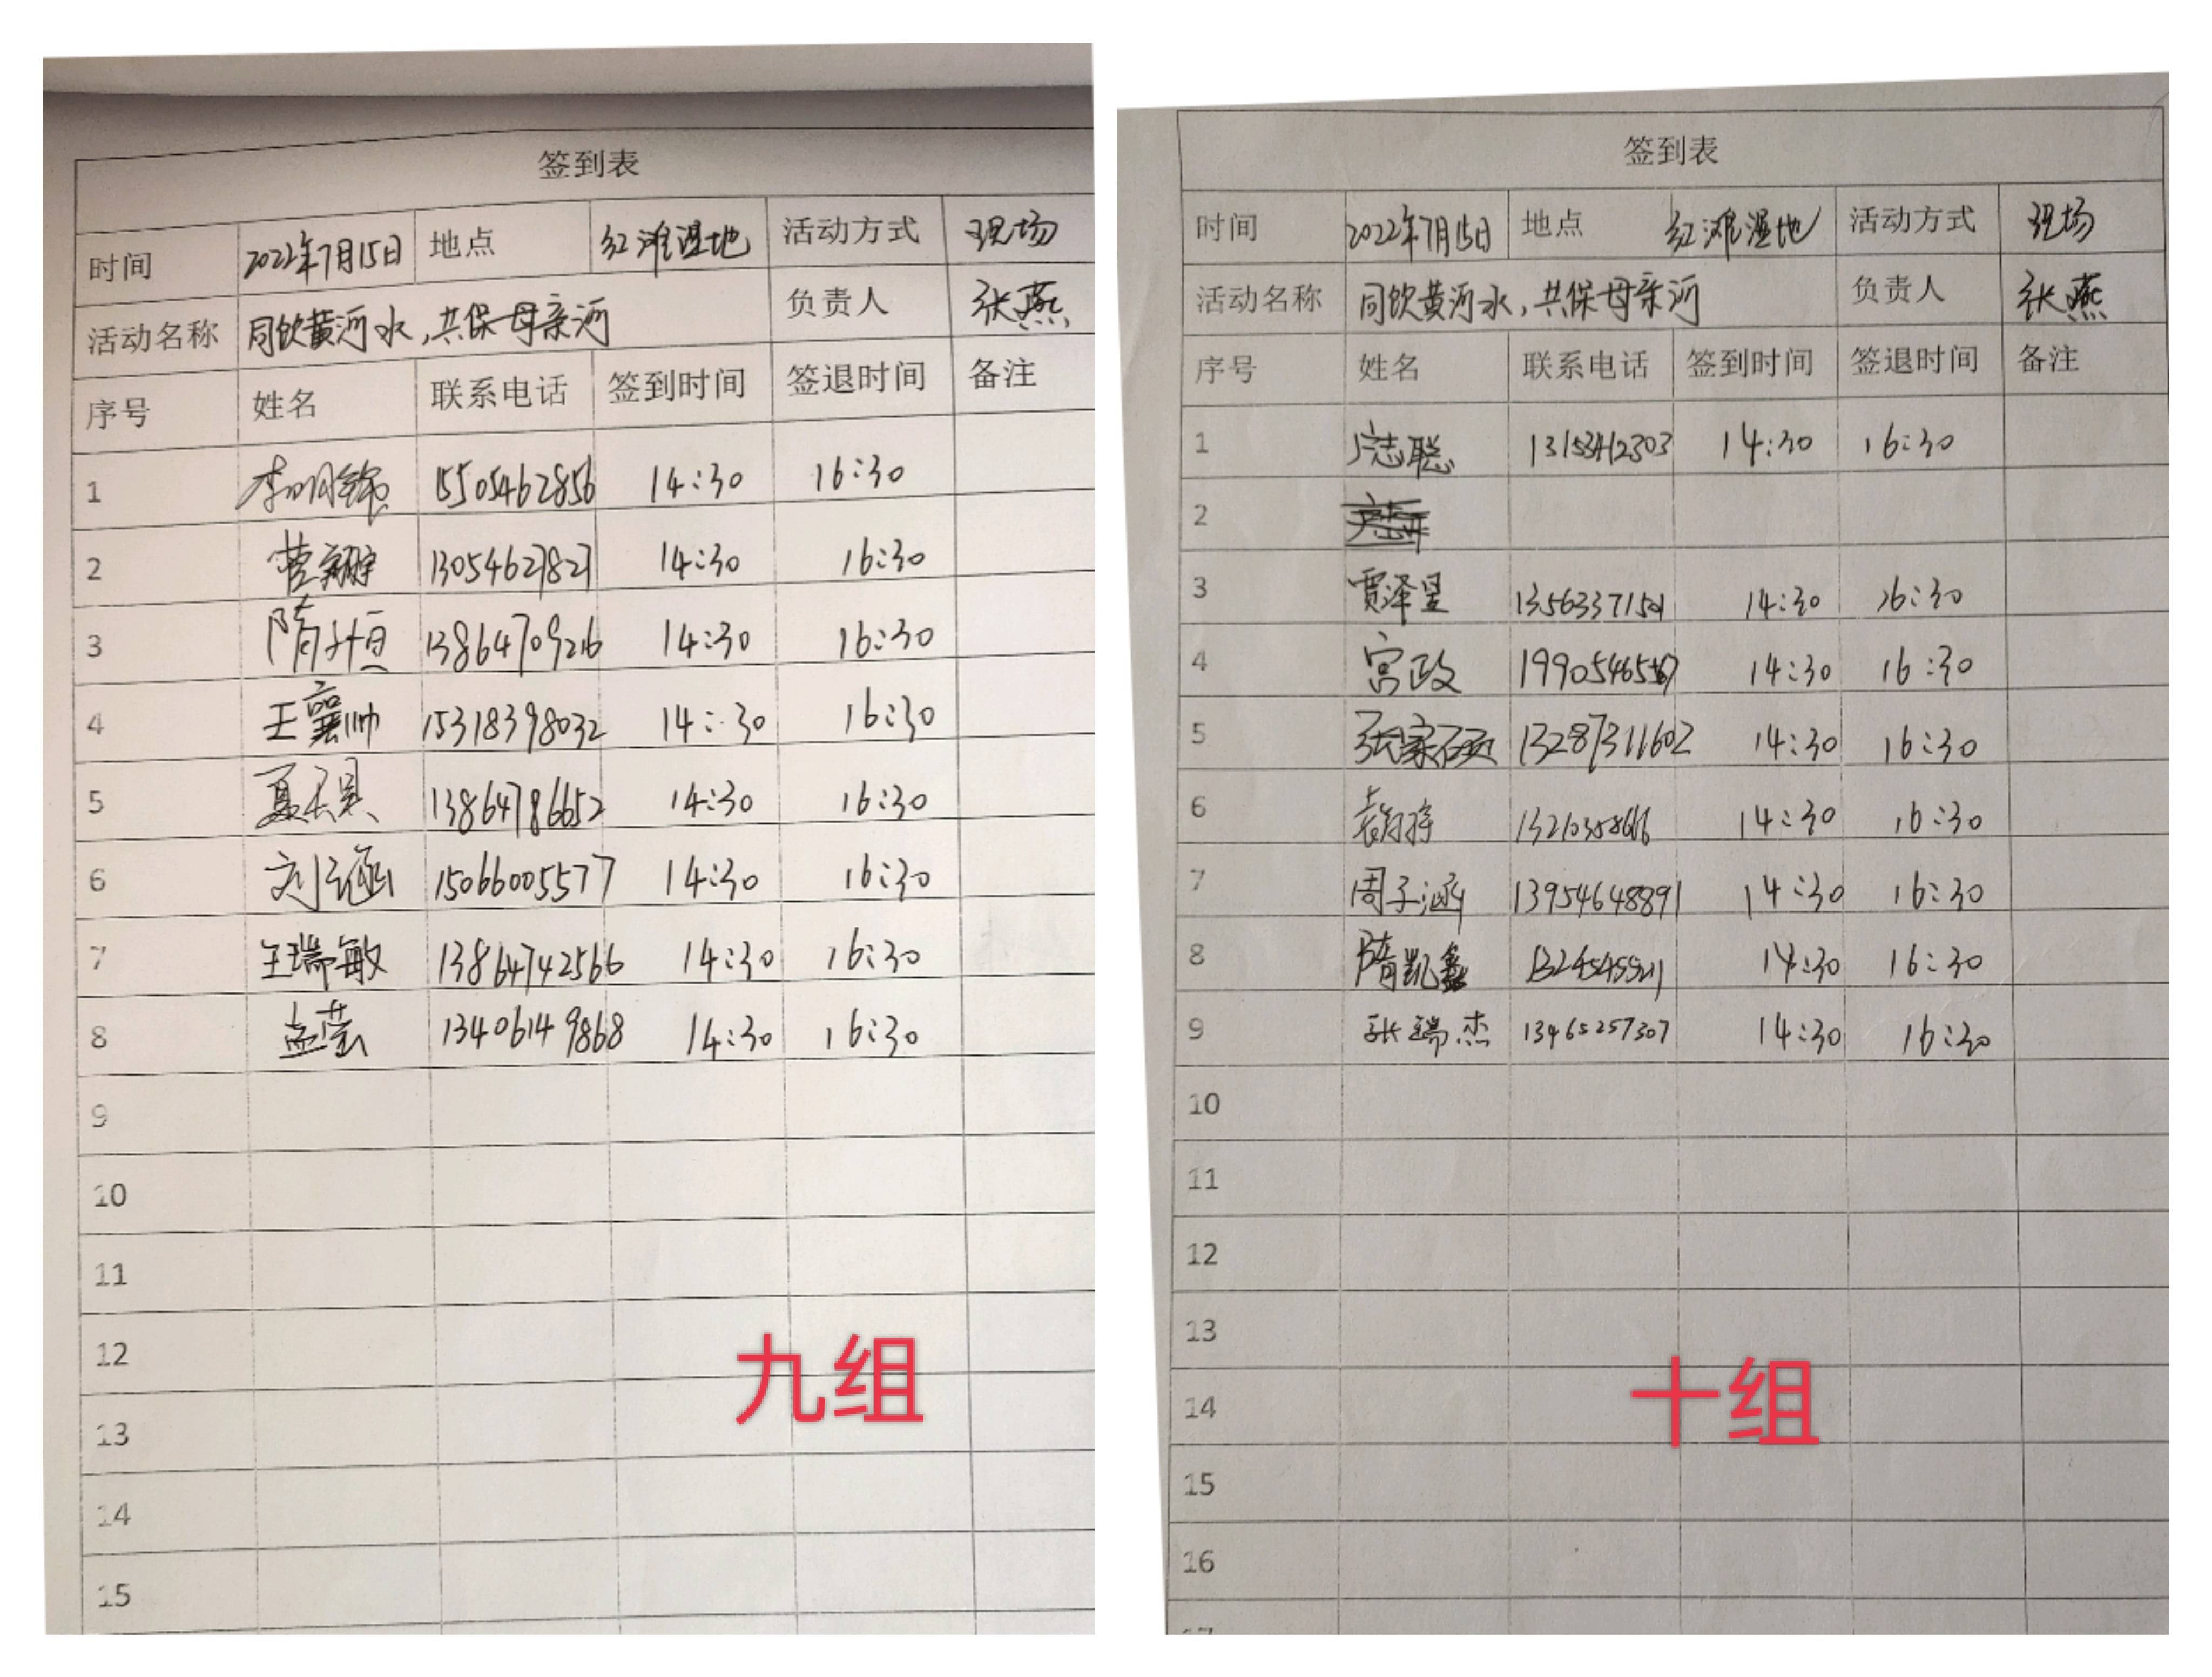 签到表
时间 2022年7月15日 地点 红滩湿地 活动方式 现场
活动名称 同饮黄河水,共保母亲河 负责人 张燕
序号 姓名 联系电话 签到时间 签退时间 备注
1 15505462856 14:30 16:30
2 13054627827 14:30 16:30
3 隋升恒 13864709216 14:30 16:30
4 王襄帅 15318398032 14:30 16:30
5 夏天昊 13864786652 14:30 16:30
6 刘子涵 15066005577 14:30 16:30
7 王瑞敏 13864742566 14:30 16:30
8 孟芸 13406149868 14:30 16:30
9
10
11
12
13
14
15
九组
签到表
时间 2022年7月15日 地点 红滩湿地 活动方式 现场
活动名称 同饮黄河水,共保母亲河 负责人 张燕
序号 姓名 联系电话 签到时间 签退时间 备注
1 13153412303 14:30 16:30
2
3 贾泽昱 14:30 16:30
4 宫政 14:30 16:30
5 张家硕 13287311602 14:30 16:30
6 14:30 16:30
7 周子涵 13954648891 14:30 16:30
8 隋凯鑫 14:30 16:30
9 张瑞杰 13465257307 14:30 16:30
10
11
12
13
14
15
16
十组